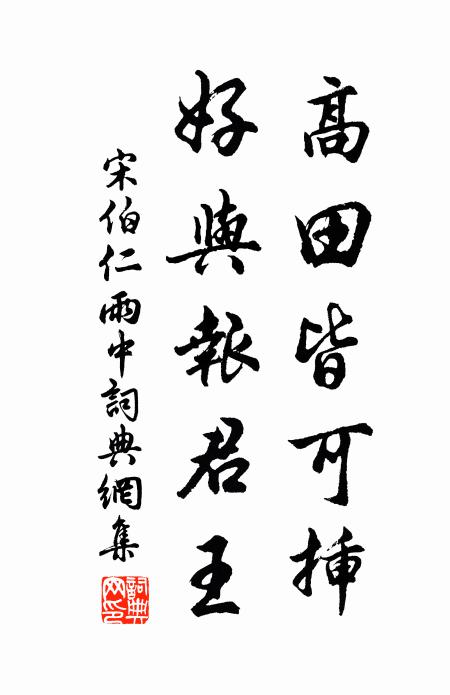 高田皆可插
好與報君王
宋伯仁雨中詞典網集
詞典网印